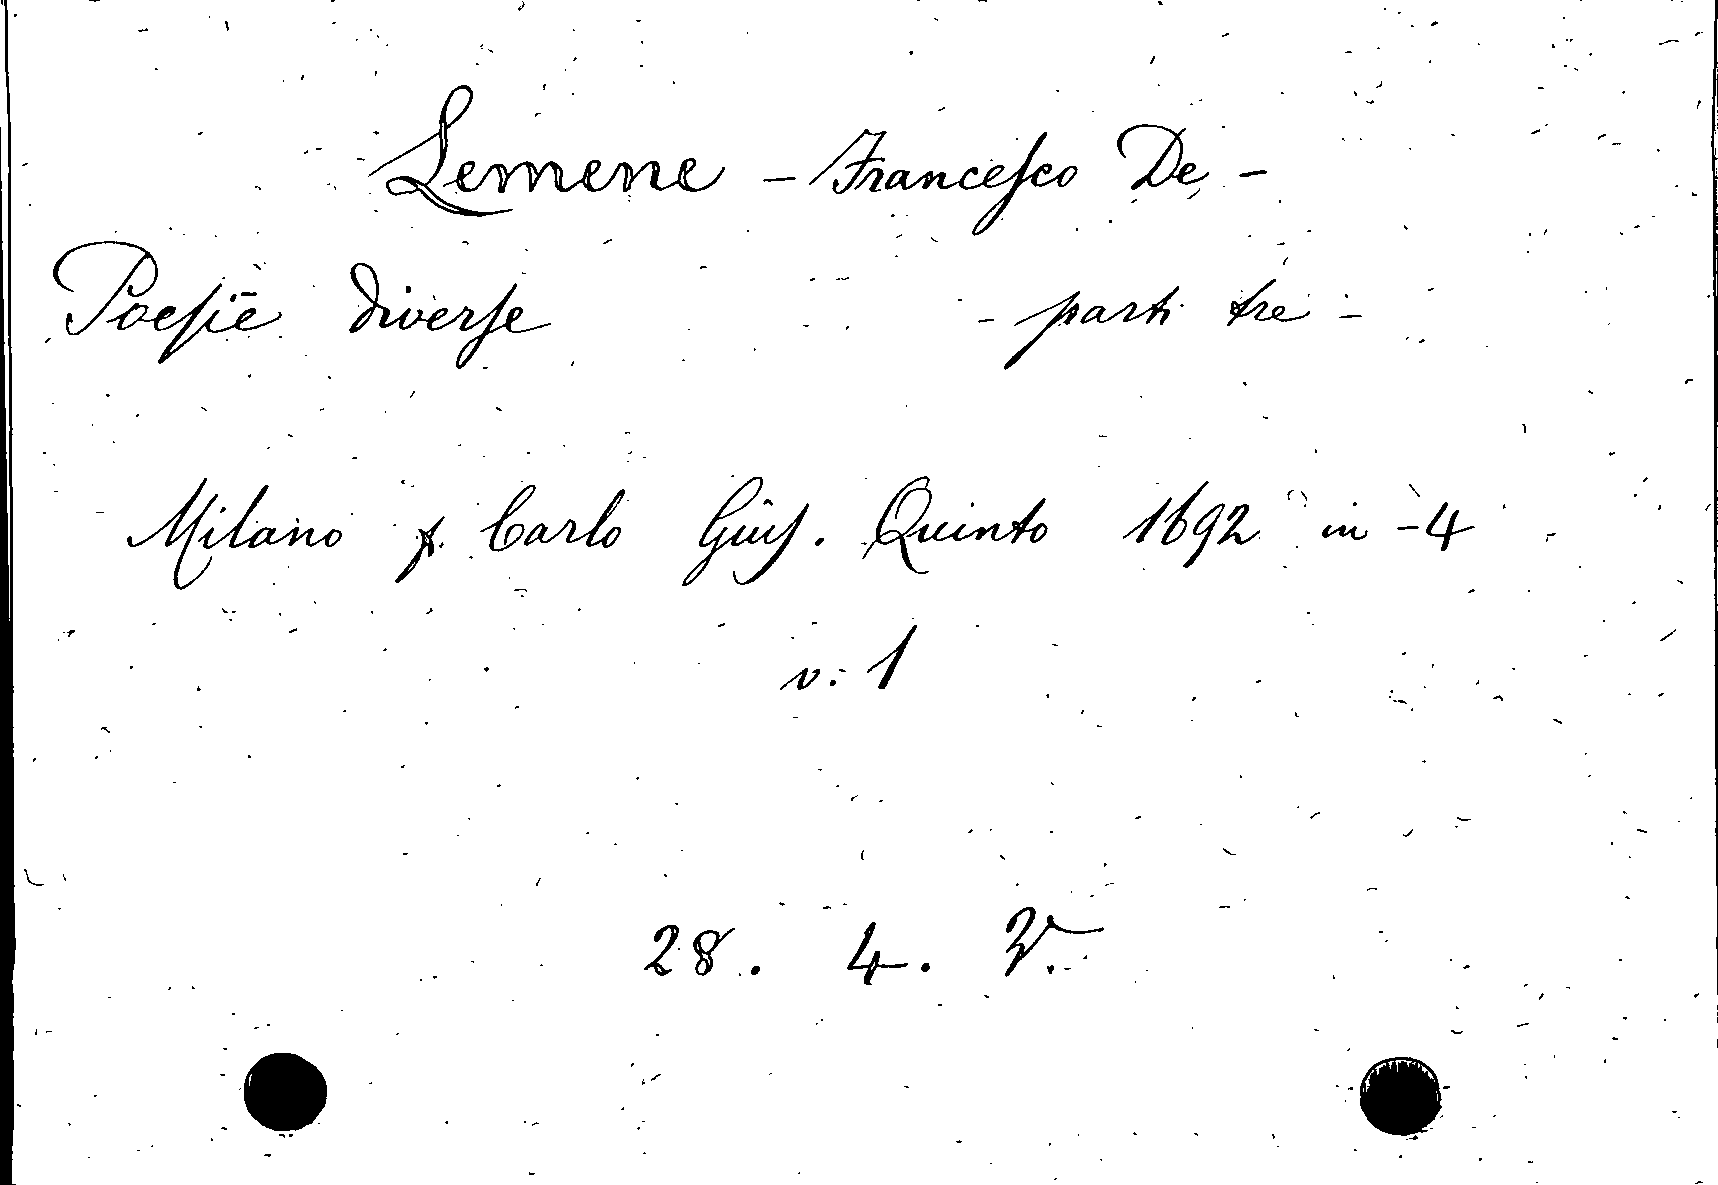 Lemene - Francesco De -
Poesie diverse - parti tre -
Milano p. Carlo Gius. Quinto 1692 in -4
v. 1
28. 4. V.